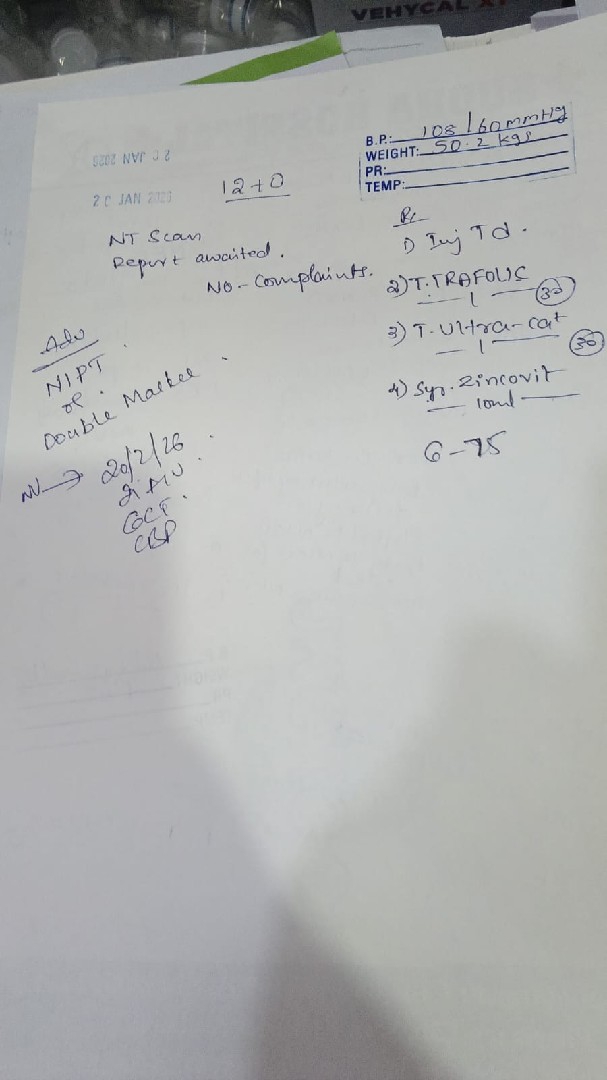 VEHYCAL
B.P.: 108/60 mmHg
WEIGHT: 50.2 kgs
PR:
TEMP:
20 JAN
12+0
NT Scan
Report awaited.
No-Complaints.
Adv
NIPT
or
Double Marker
NV → 20/2/26
GCT.
CBP
Rx
1) Inj Td.
2) T. TRAFOLIC
— 1 — (30)
3) T. Ultra-Cat
— 1 — (30)
4) Syp. Zincovit
— 10ml —
6-75